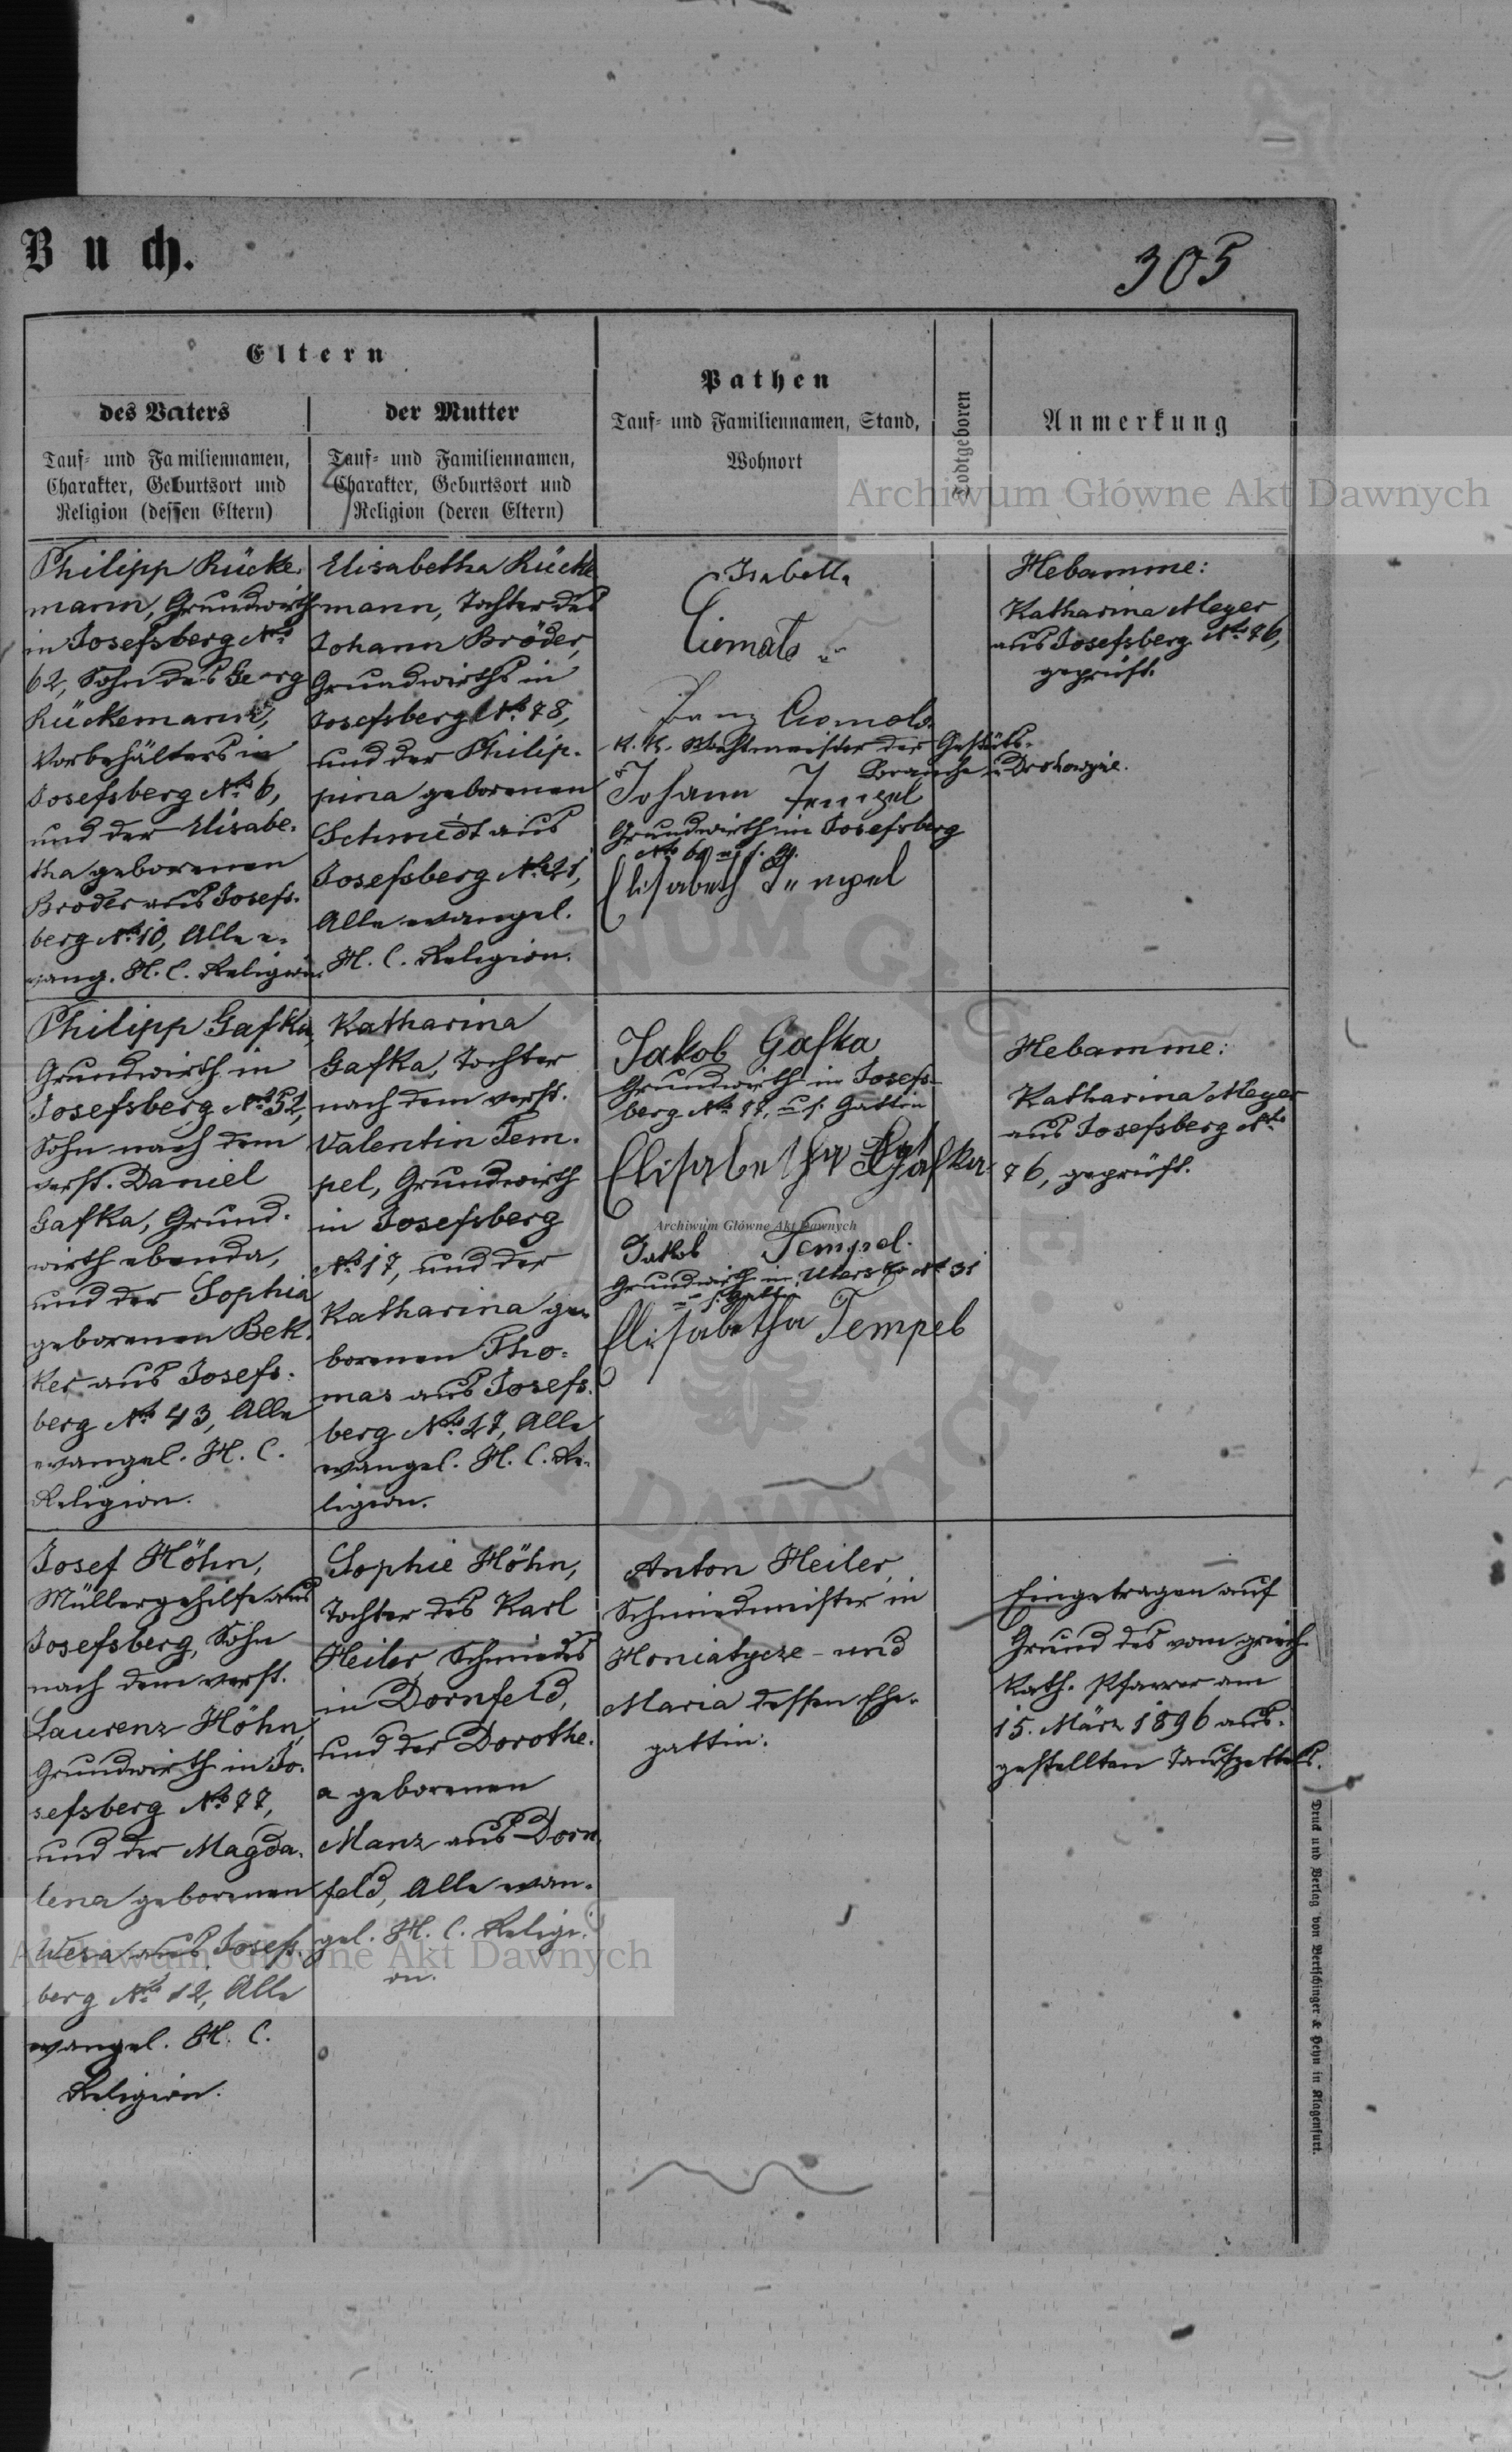 Buch.
305
Eltern
des Vaters
Tauf- und Familiennamen,
Charakter, Geburtsort und
Religion (dessen Eltern)
der Mutter
Tauf- und Familiennamen,
Charakter, Geburtsort und
Religion (deren Eltern)
Pathen
Tauf- und Familiennamen, Stand,
Wohnort
Todtgeboren
Anmerkung
Archiwum Główne Akt Dawnych
Philipp Rücke-
mann, Grundwirth
in Josefsberg No
62, Sohn des Georg
Rückemann,
Vorbehälters in
Josefsberg No 6,
und der Elisabe-
tha geborenen
Bröder aus Josefs-
berg No 10, Alle e-
vang. H. C. Religion.
Elisabetha Rücke
mann, Tochter des
Johann Bröder,
Grundwirths in
Josefsberg No 78,
und der Philip-
pina geborenen
Schmidt aus
Josefsberg No 21,
Alle evangel.
H. C. Religion.
Isabella
Ciomala
Ciomala
K. K. Wachtmeister der Gestüts-
Branche in Drohowyże.
Johann Tempel
Grundwirth in Josefsberg
Elisabeth Tempel
Hebamme:
Katharina Meyer
aus Josefsberg No 76,
geprüft.
Philipp Gafka,
Grundwirth in
Josefsberg No 52,
Sohn nach dem
verst. Daniel
Gafka, Grund-
wirth ebenda,
und der Sophia
geborenen Bek-
ker aus Josefs-
berg No 43, Alle
evangel. H. C.
Religion.
Katharina
Gafka, Tochter
nach dem verst.
Valentin Tem-
pel, Grundwirth
in Josefsberg
No 17, und der
Katharina ge-
borenen Tho-
mas aus Josefs-
berg No 27, Alle
evangel. H. C. Re-
ligion.
Jakob Gafka
Grundwirth in Josefs-
berg No 17, u. s. Gattin
Elisabetha Gafka
Archiwum Główne Akt Dawnych
Jakob Tempel.
Grundwirth in Ugersko No 31
u. s. Gattin
Elisabetha Tempel
Hebamme:
Katharina Meyer
aus Josefsberg No
76, geprüft.
Josef Höhn,
Müllergehilfe aus
Josefsberg, Sohn
nach dem verst.
Laurenz Höhn,
Grundwirth in Jo-
sefsberg No 77,
und der Magda-
lena geborenen
Wesa aus Josefs-
berg No 12, Alle
evangel. H. C.
Religion.
Sophie Höhn,
Tochter des Karl
Heiler, Schmiedes
in Dornfeld,
und der Dorothe-
a geborenen
Manz aus Dorn-
feld, Alle evan-
gel. H. C. Religi-
on.
Anton Heiler,
Schmiedmeister in
Honiatycze - und
Maria dessen Ehe-
gattin.
Eingetragen auf
Grund des vom griech.
kath. Pfarrer am
15. März 1896 aus-
gestellten Taufzettels.
Archiwum Główne Akt Dawnych
Druck und Verlag von Bertschinger & Heyn in Klagenfurt.